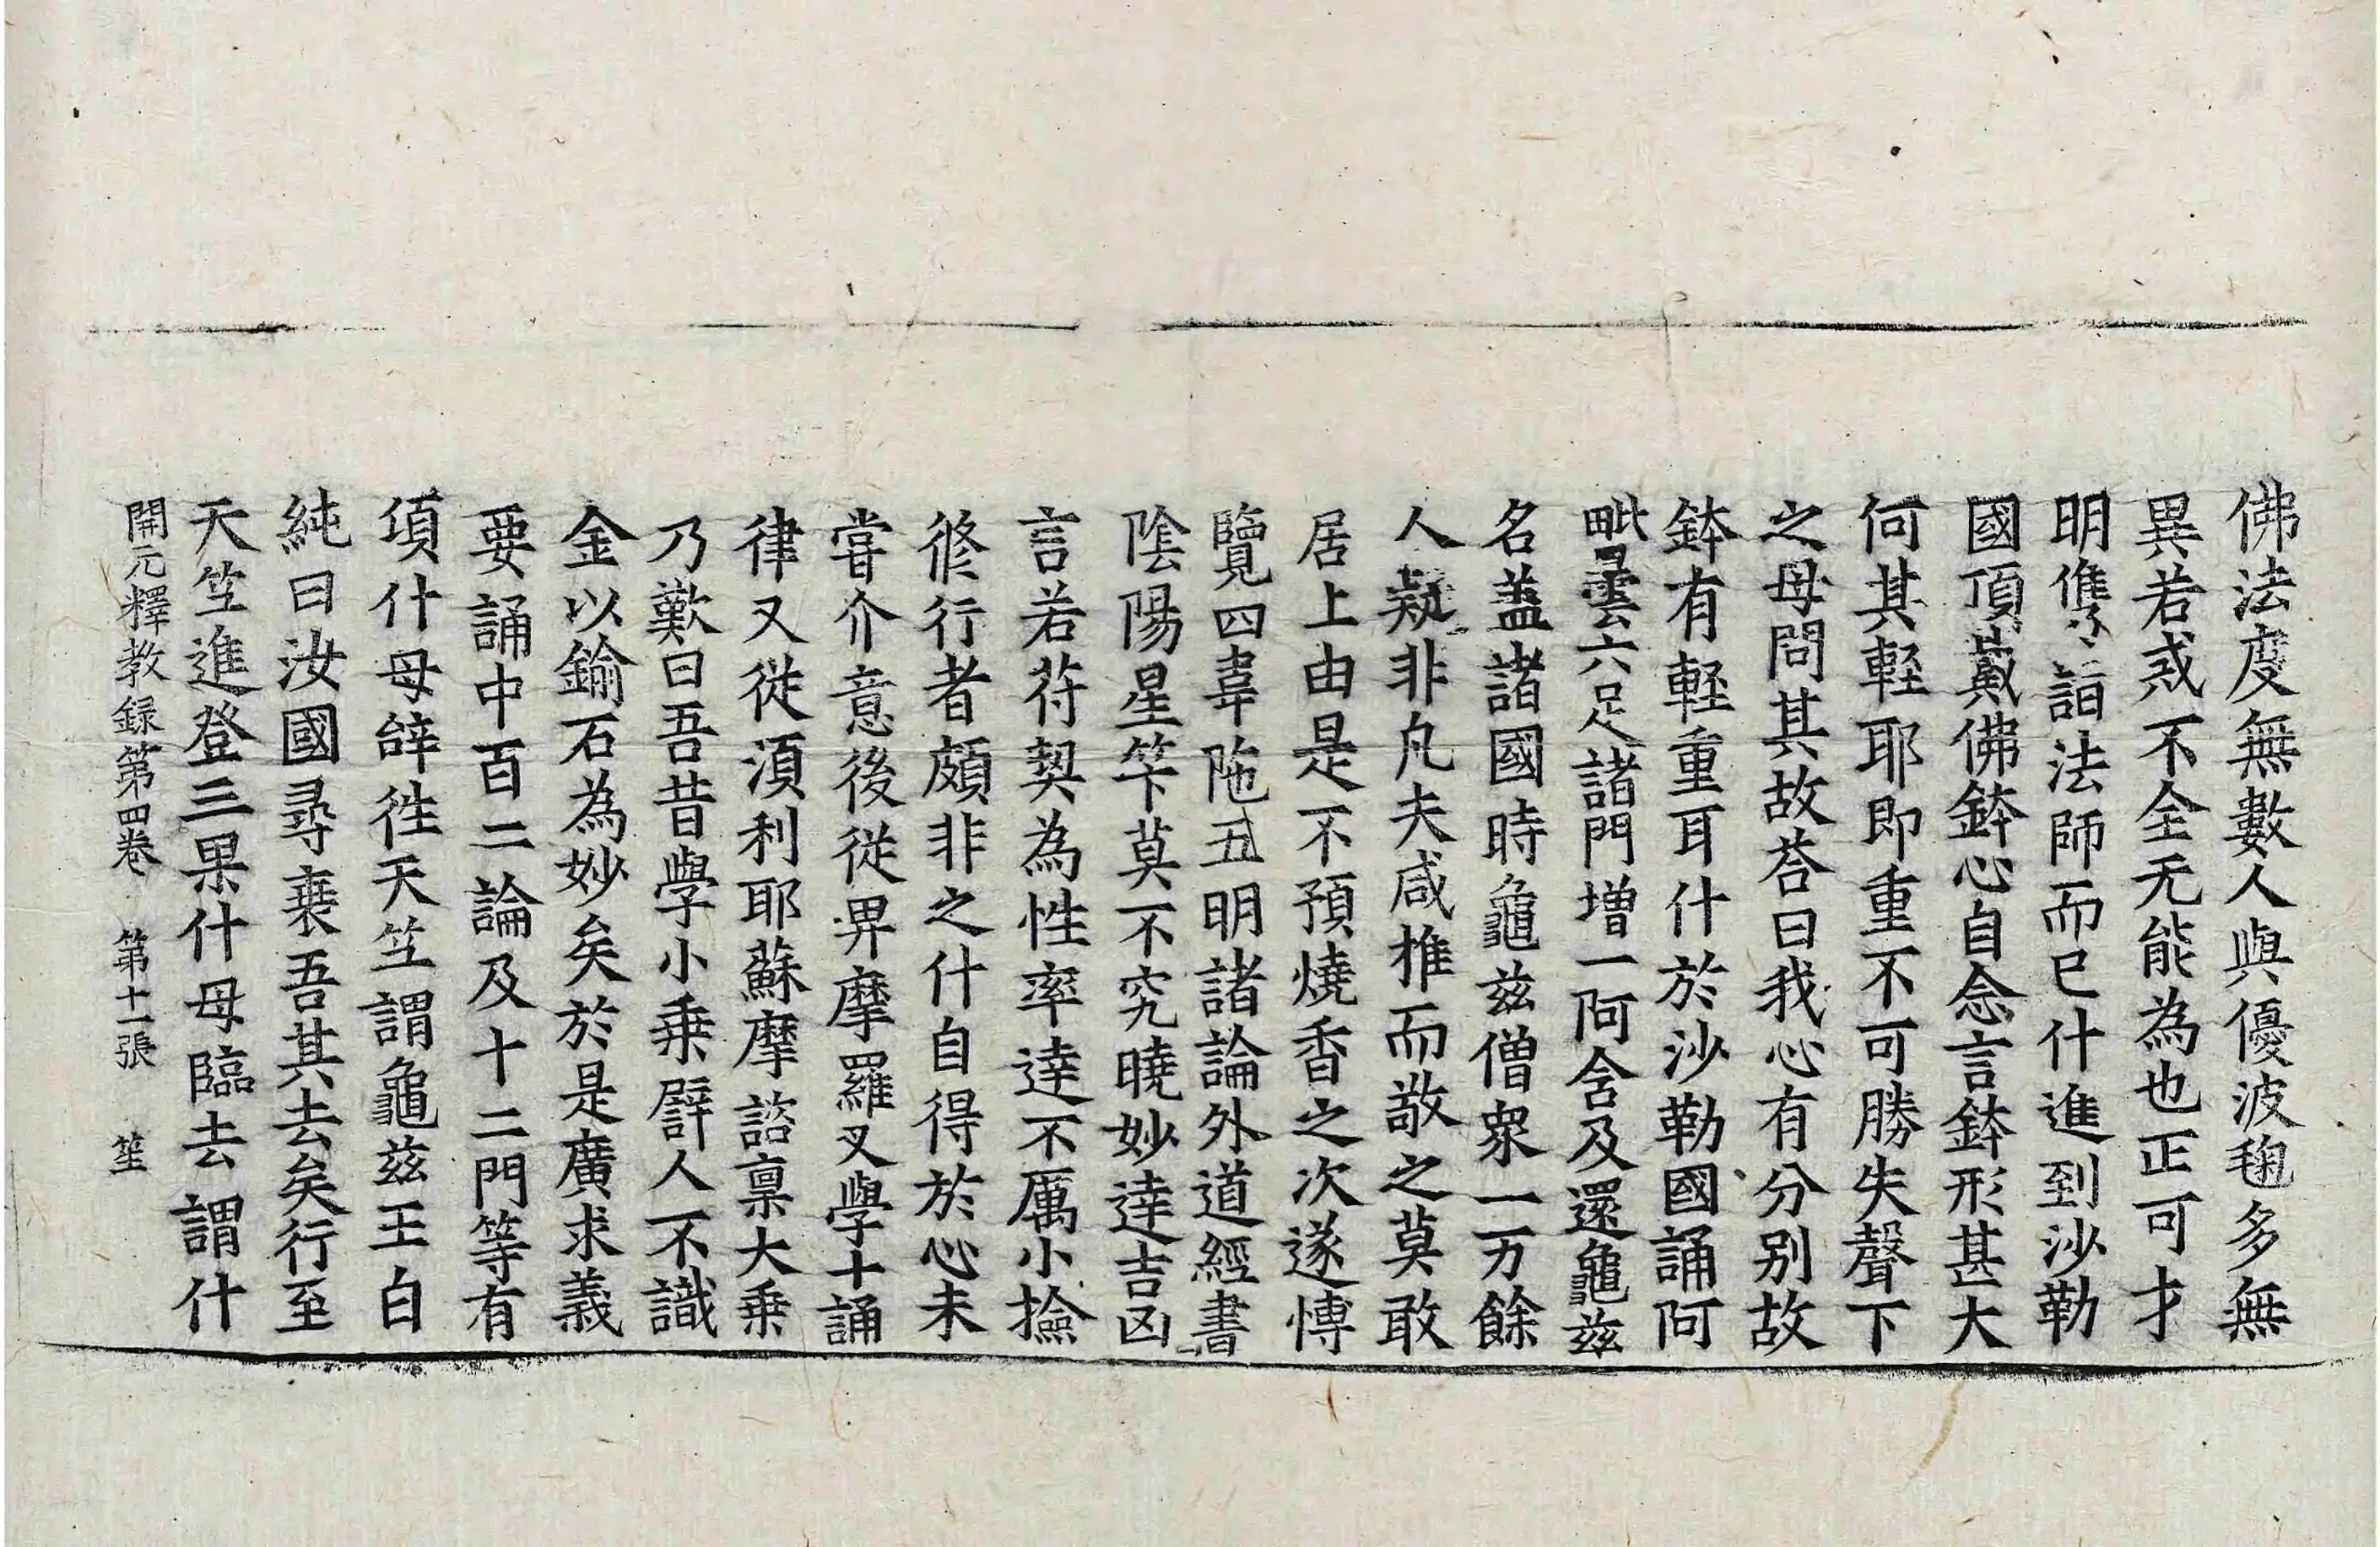 佛法度無數人與優波毱多無
異若或不全无能為也正可才
明儁詣法師而已什進到沙勒
國頂戴佛鉢心自念言鉢形甚大
何其輕耶即重不可勝失聲下
之母問其故荅曰我心有分別故
鉢有輕重耳什於沙勒國誦阿
毗曇六足諸門增一阿含及還龜茲
名蓋諸國時龜茲僧衆一万餘
人疑非凡夫咸推而敬之莫敢
居上由是不預燒香之次遂博
覽四韋陁五明諸論外道經書
陰陽星筭莫不究曉妙達吉凶
言若苻契為性率達不厲小撿
修行者頗非之什自得於心未
甞介意後從卑摩羅叉學十誦
律又從湏利耶蘇摩諮稟大乗
乃歎曰吾昔學小乗譬人不識
金以鍮石為妙矣於是廣求義
要誦中百二論及十二門等有
頃什母辝徃天竺謂龜茲王白
純曰汝國尋衰吾其去矣行至
天竺進登三果什母臨去謂什
開元釋教録第四卷 第十一張 笙